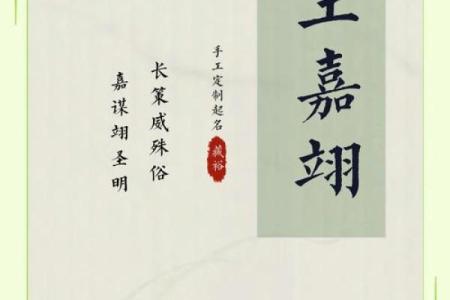 王嘉翊
手工定制起名
藏裕
长策威殊俗
嘉谋翊圣明